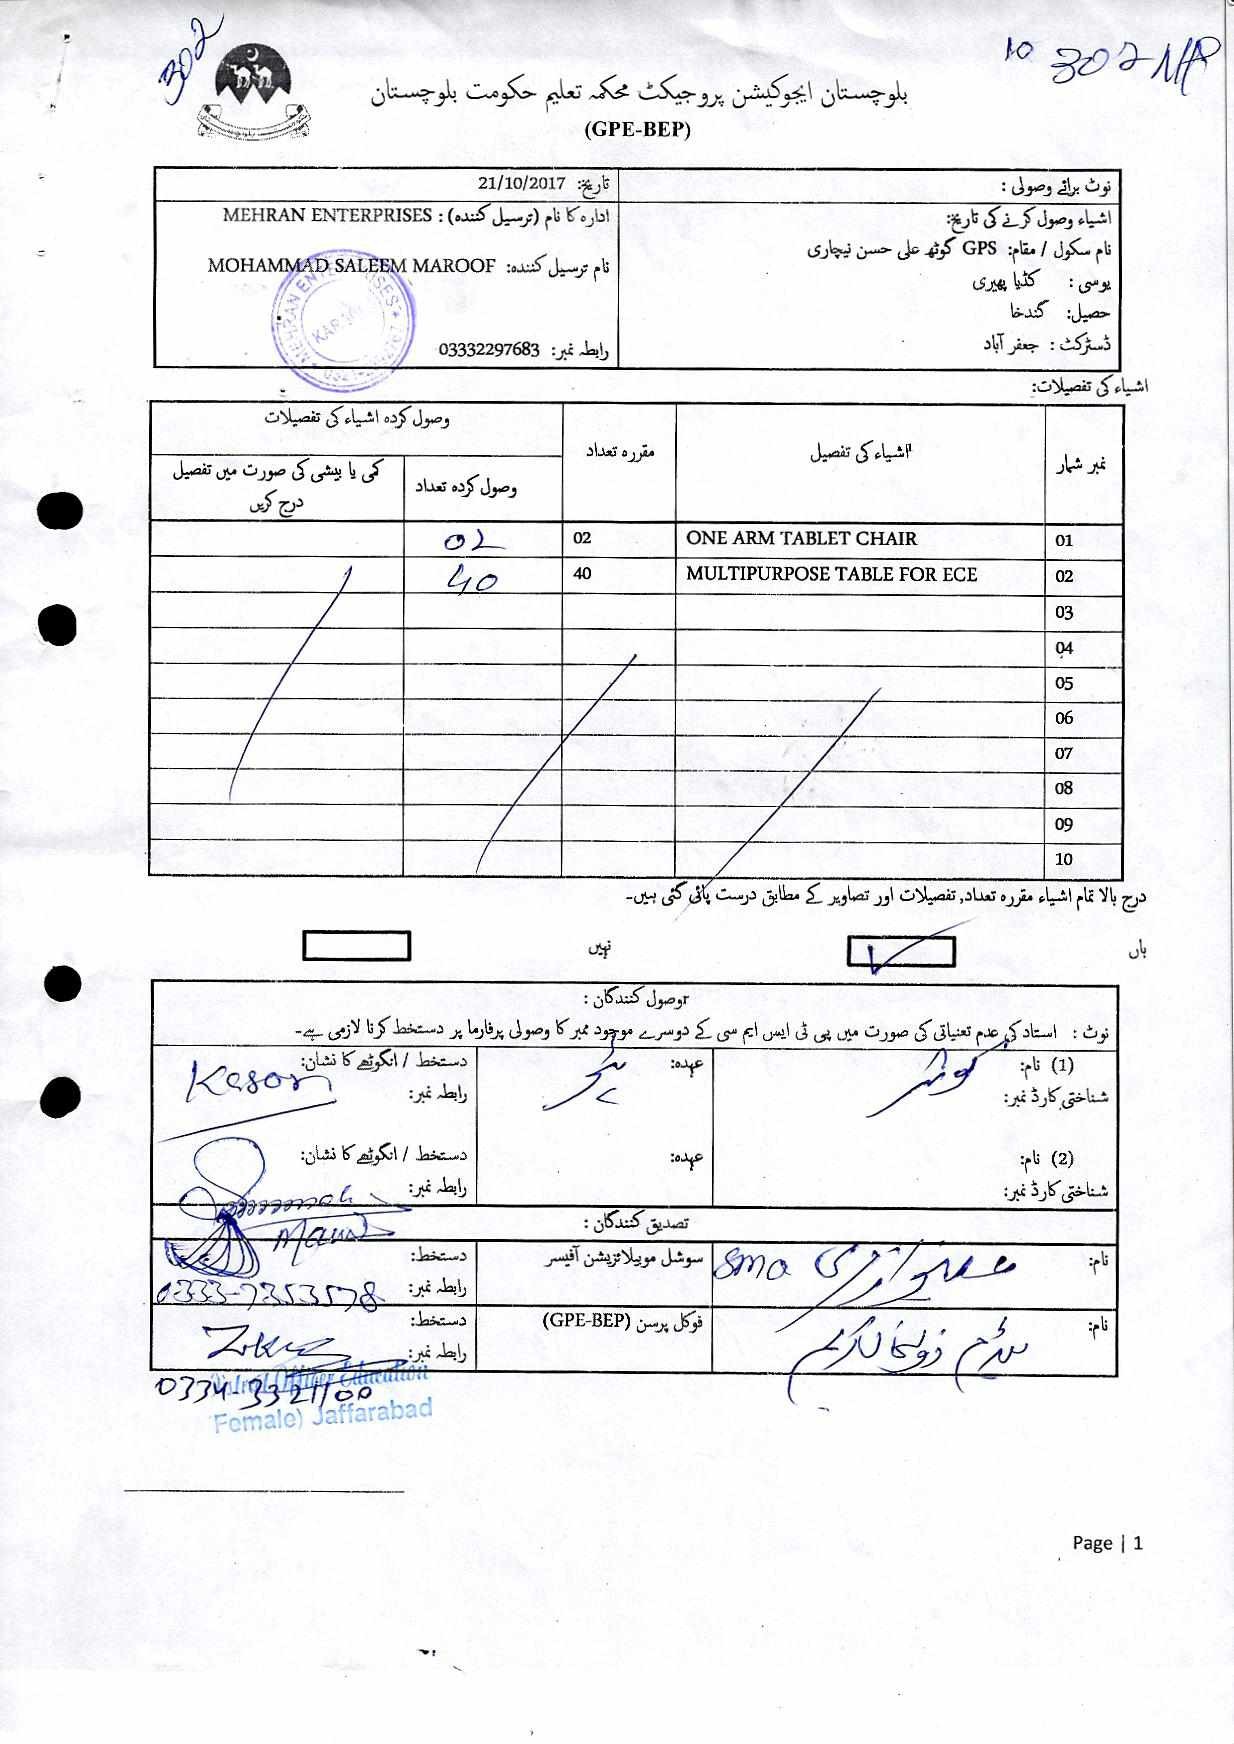 302
10 302 NP
بلوچستان ایجوکیشن پروجیکٹ محکمہ تعلیم حکومت بلوچستان
(GPE-BEP)
نوٹ برائے وصولی :
تاریخ: 21/10/2017
اشیاء وصول کرنے کی تاریخ:
نام سکول / مقام: GPS گوٹھ علی حسن نیچاری
یوسی : کڈیا پھیری
حصیل: گندخا
ڈسٹرکٹ : جعفر آباد
ادارہ کا نام (ترسیل کنندہ) : MEHRAN ENTERPRISES
نام ترسیل کنندہ: MOHAMMAD SALEEM MAROOF
رابطہ نمبر: 03332297683
MEHRAN ENTERPRISES
اشیاء کی تفصیلات:
نمبر شمار اشیاء کی تفصیل مقررہ تعداد وصول کردہ اشیاء کی تفصیلات
وصول کردہ تعداد کمی یا بیشی کی صورت میں تفصیل درج کریں
01 ONE ARM TABLET CHAIR 02 02
02 MULTIPURPOSE TABLE FOR ECE 40 40
03
04
05
06
07
08
09
10
درج بالا تمام اشیاء مقررہ تعداد, تفصیلات اور تصاویر کے مطابق درست پائی گئی ہیں۔
ہاں نہیں
وصول کنندگان :
نوٹ : استاد کی عدم تعنیاتی کی صورت میں پی ٹی ایس ایم سی کے دوسرے موجود ممبر کا وصولی پرفارما پر دستخط کرنا لازمی ہے۔
(1) نام: عہدہ: دستخط / انگوٹھے کا نشان:
شناختی کارڈ نمبر: رابطہ نمبر:
(2) نام: عہدہ: دستخط / انگوٹھے کا نشان:
شناختی کارڈ نمبر: رابطہ نمبر:
تصدیق کنندگان :
نام: SMO سوشل موبیلائزیشن آفیسر دستخط:
رابطہ نمبر: 0333-7353578
نام: فوکل پرسن (GPE-BEP) دستخط:
رابطہ نمبر:
0334-3321100
Officer Education
Female) Jaffarabad
Page | 1